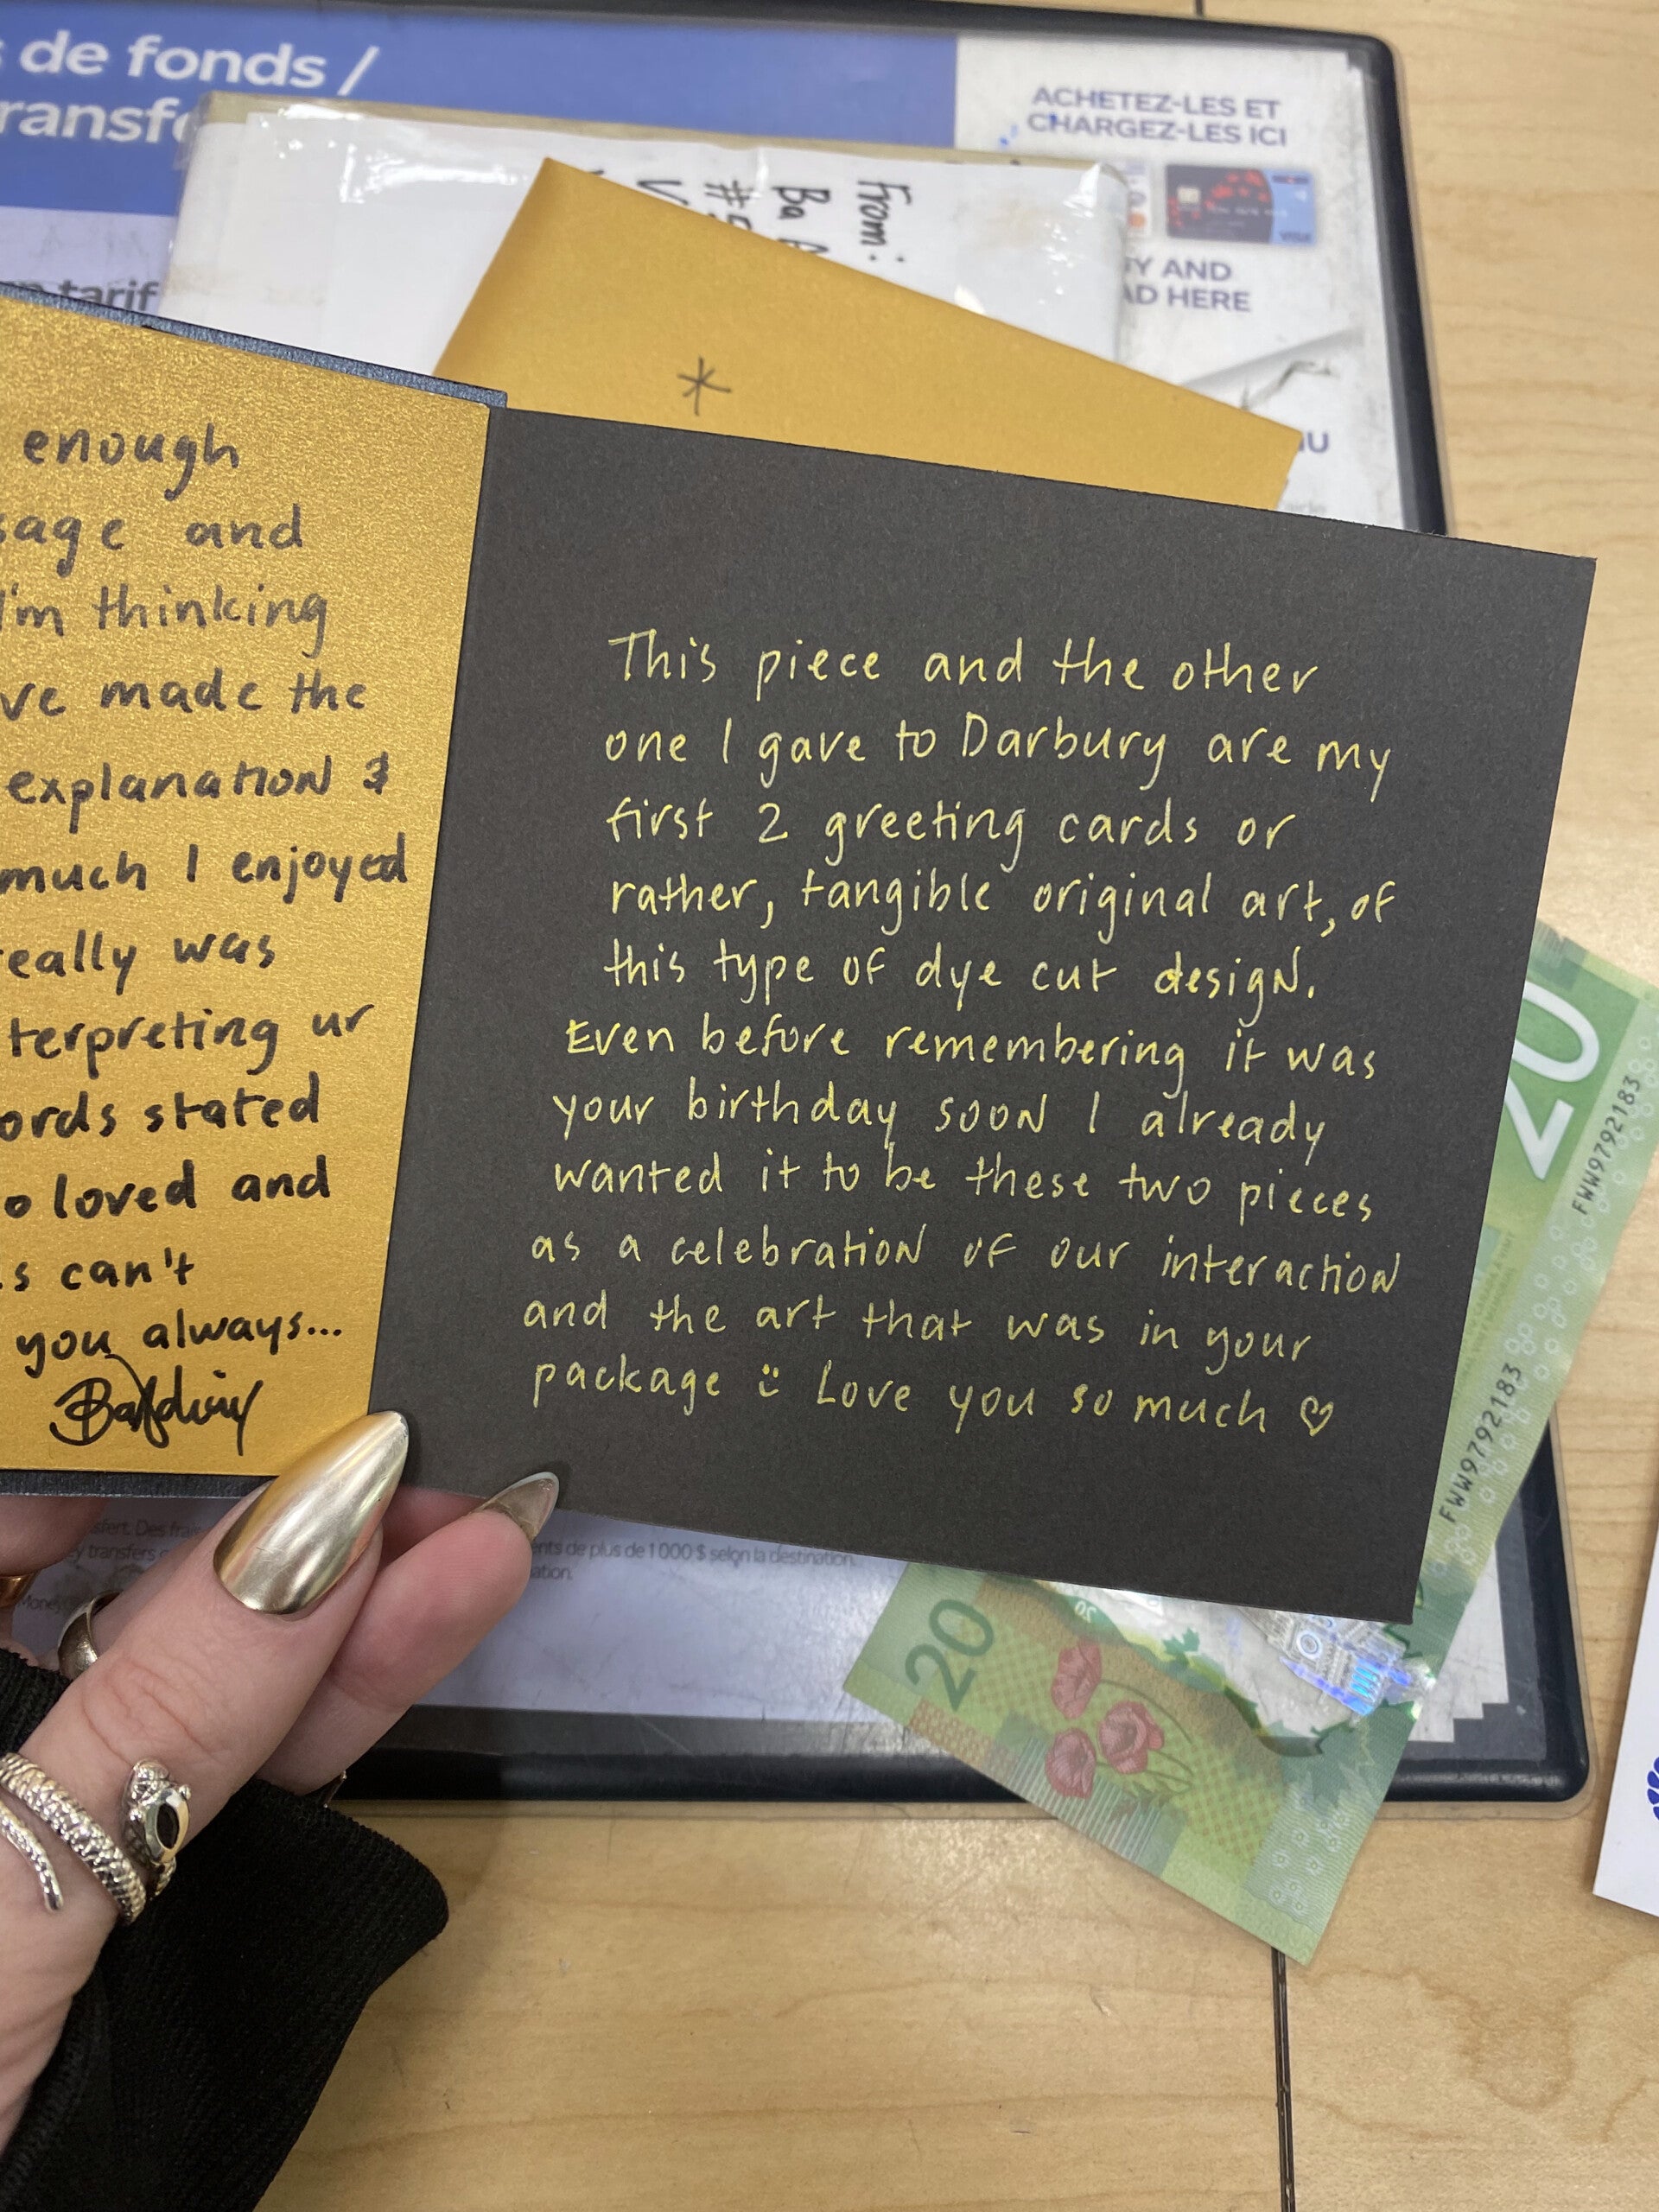 de fonds /
ACHETEZ-LES ET
CHARGEZ-LES ICI
VISA
AND
HERE
From:
Ba
tarif
*
enough
and
I'm thinking
made the
explanation &
much I enjoyed
was
ur
stated
loved and
can't
you always...
This piece and the other
one I gave to Darbury are my
first 2 greeting cards or
rather, tangible original art, of
this type of dye cut design.
Even before remembering it was
your birthday soon I already
wanted it to be these two pieces
as a celebration of our interaction
and the art that was in your
package :) Love you so much ♡
20
FWW9792183
FWW9792183
20
20
de plus de 1000 $ selon la destination.